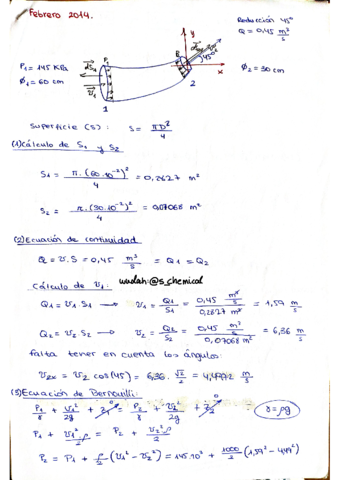 Febrero 2014.
Reducción 45°
Q = 0,45 m³/s
P₁ = 145 KPa
Φ₁ = 60 cm
Φ₂ = 30 cm
y
x
P₁
B
45°
1
2
Superficie (S) : S = πD²/4
(1) Cálculo de S₁ y S₂
S₁ = π·(60·10⁻²)²/4 = 0,2827 m²
S₂ = π·(30·10⁻²)²/4 = 0,07068 m²
(2) Ecuación de continuidad
Q = v·S = 0,45 m³/s = Q₁ = Q₂
wuolah:@s_chemical
Cálculo de v₁:
Q₁ = v₁·S₁ → v₁ = Q₁/S₁ = 0,45 m³/s / 0,2827 m² = 1,59 m/s
Q₂ = v₂·S₂ → v₂ = Q₂/S₂ = 0,45 m³/s / 0,07068 m² = 6,36 m/s
falta tener en cuenta los ángulos:
v₂ₓ = v₂ cos(45) = 6,36 · √2/2 = 4,4972 m/s
(3) Ecuación de Bernouilli:
P₁/γ + v₁²/2g + z₁ = P₂/γ + v₂²/2g + z₂ γ = ρg
P₁ + v₁²·ρ/2 = P₂ + v₂²ρ/2
P₂ = P₁ + ρ/2 (v₁² - v₂²) = 145·10³ + 1000/2 (1,59² - 4,49²)